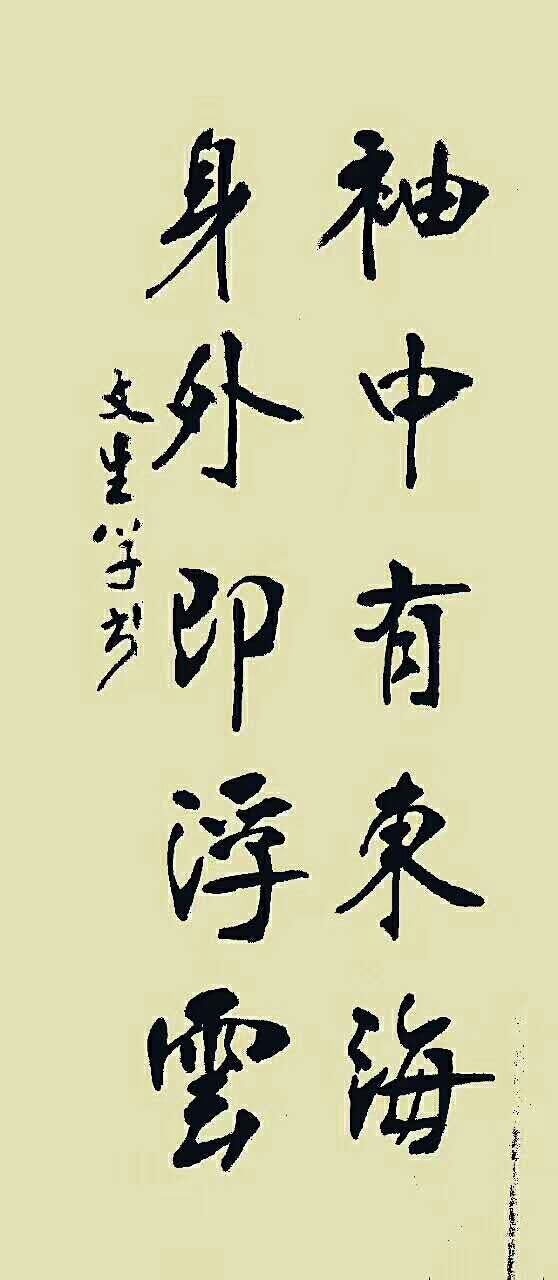 袖中有東海
身外即浮雲
文生学书